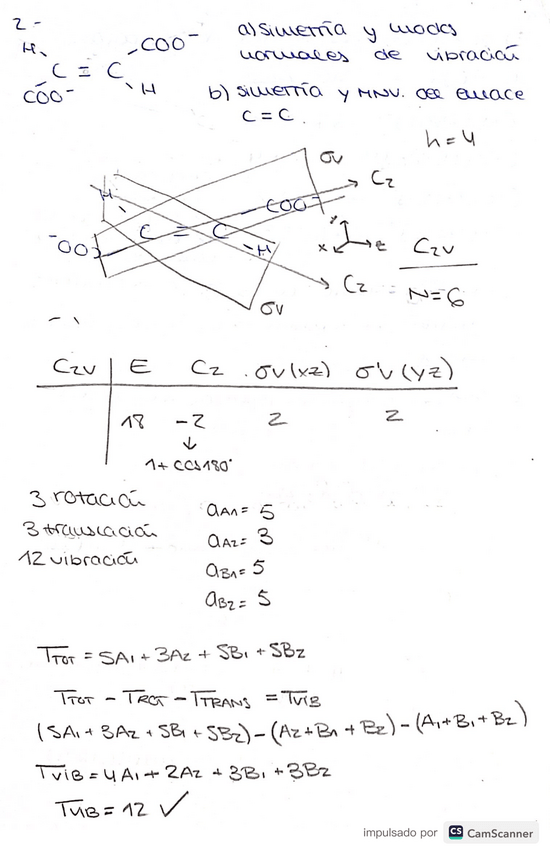 2-
a) Simetría y modos
normales de vibración
H COO⁻
C = C
COO⁻ H
b) simetría y MNV. del enlace
C = C.
h = 4
σv
C2
H
COO⁻
C = C
⁻OO
H
y
x z
C2v
C2
N=6
σv
C2v E C2 σv(xz) σ'v(yz)
18 -2 2 2
↓
1+cos180°
3 rotación
3 translación
12 vibración
aA1= 5
aA2= 3
aB1= 5
aB2= 5
ΓTOT = 5A1 + 3A2 + 5B1 + 5B2
ΓTOT - ΓROT - ΓTRANS = ΓVIB
(5A1 + 3A2 + 5B1 + 5B2) - (A2+B1+B2) - (A1+B1+B2)
ΓVIB = 4A1 + 2A2 + 3B1 + 3B2
ΓVIB = 12 ✓
impulsado por CS CamScanner